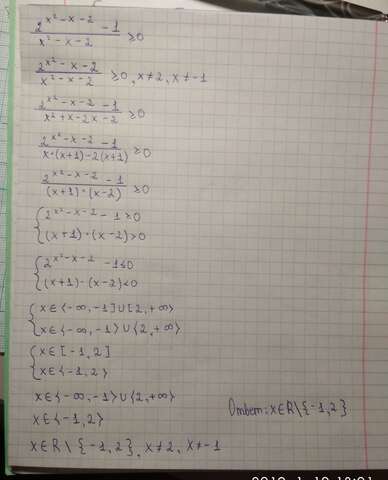 2^(x²-x-2) -1 / x²-x-2 ≥0
2^(x²-x-2) / x²-x-2 ≥0, x≠2, x≠-1
2^(x²-x-2) -1 / x²+x-2x-2 ≥0
2^(x²-x-2) -1 / x·(x+1)-2(x+1) ≥0
2^(x²-x-2) -1 / (x+1)·(x-2) ≥0
{2^(x²-x-2) -1≥0
(x+1)·(x-2)>0
{2^(x²-x-2) -1≤0
(x+1)·(x-2)<0
{x∈⟨-∞,-1]∪[2,+∞⟩
x∈⟨-∞,-1⟩∪⟨2,+∞⟩
{x∈[-1,2]
x∈⟨-1,2⟩
x∈⟨-∞,-1⟩∪⟨2,+∞⟩
x∈⟨-1,2⟩
Ответ: x∈R\{-1,2}
x∈R\{-1,2}, x≠2, x≠-1